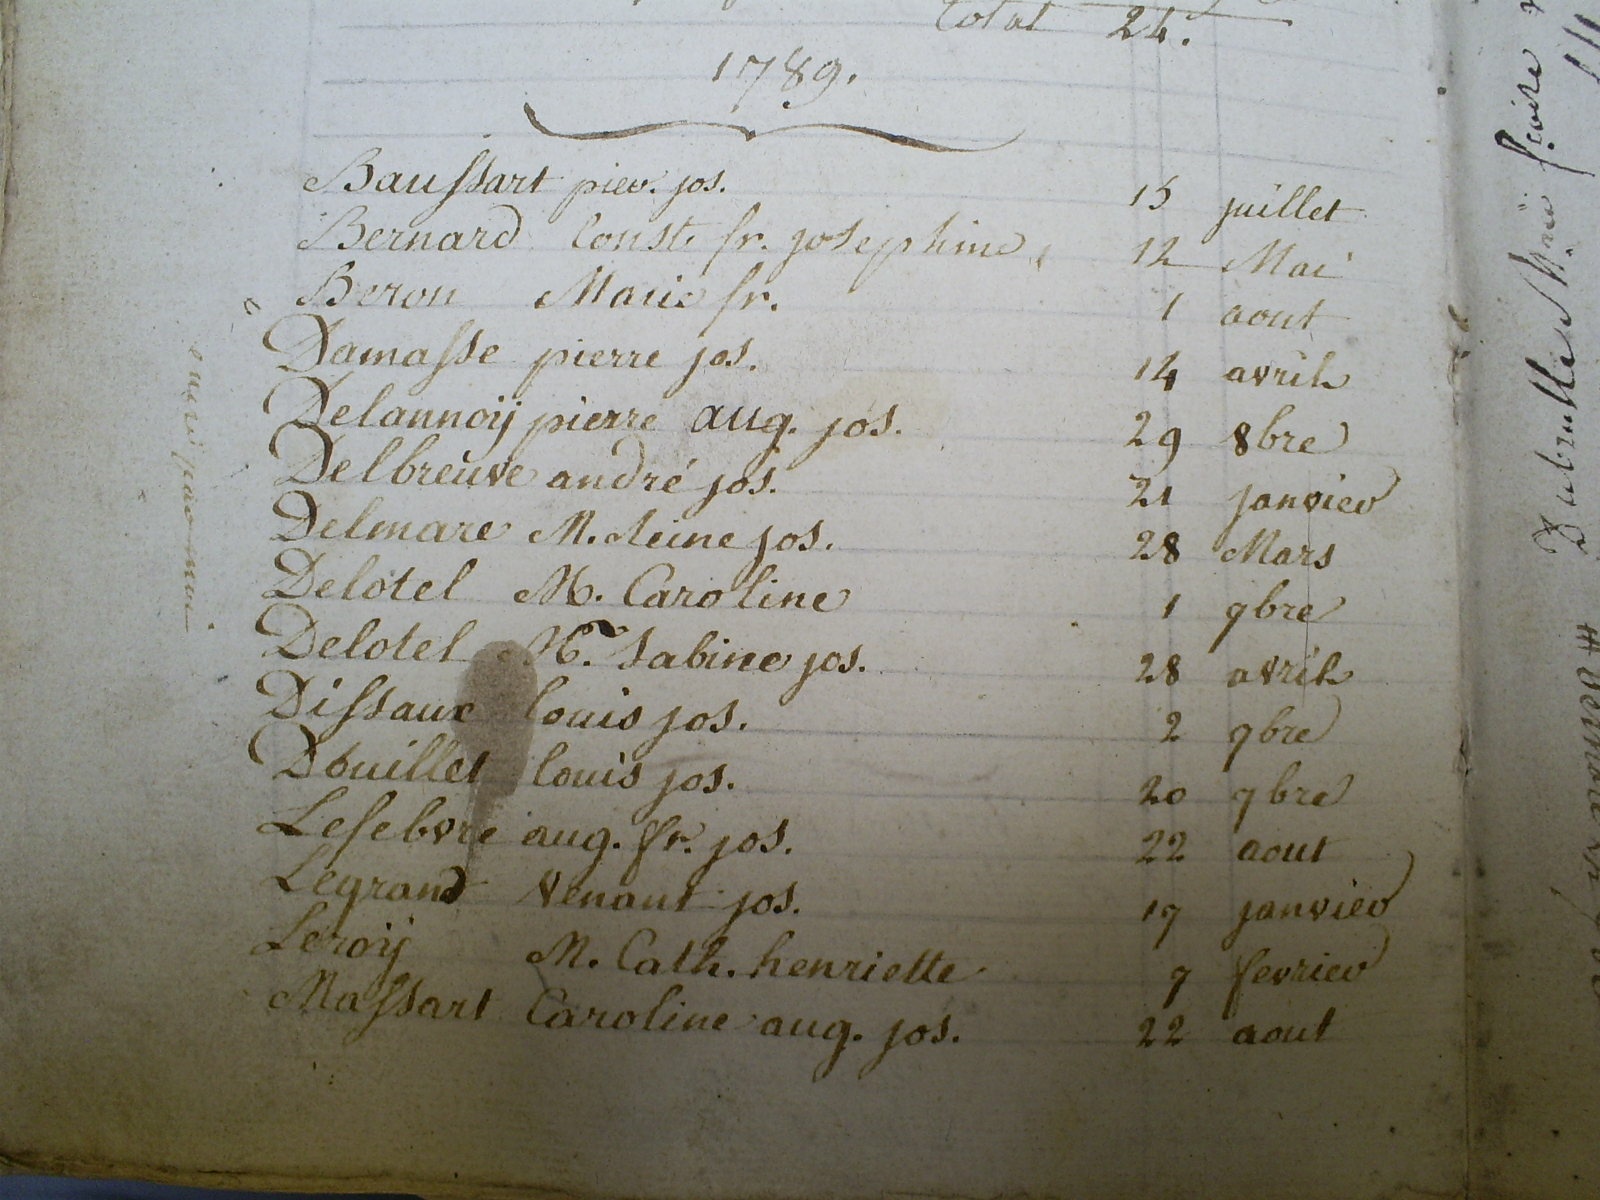 Total 24.
1789.
Baussart pier. jos. 15 juillet
Bernard Const. fr. josephine 12 Mai
Beron Marie fr. 1 aout
Damasse pierre jos. 14 avril
Delannoÿ pierre aug. jos. 29 8bre
Delbreuve andré jos. 21 janvier
Delmare M. Reine jos. 28 Mars
Delotel M. Caroline 1 9bre
Delotel M. Sabine jos. 28 avril
Dissaux louis jos. 2 9bre
Douillet louis jos. 20 9bre
Lefebvre aug. fr. jos. 22 aout
Legrand Venant jos. 17 janvier
Leroÿ M. Cath. henriette 9 fevrier
Massart Caroline aug. jos. 22 aout